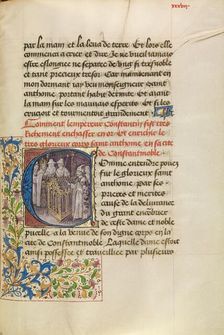 xxxviij
par la main et la leva de terre Et lors elle
commenca a crier et dire Je ne vueil jamais
estre eslongie ne separee de luy si tresnoble
et tant precieux tresor Car maintenant en
mon dormant ay veu monseigneur saint
anthoine portant habit dermite et cloant
sa main sur les mauvais esperits Et si les
crucioit et tourmentoit grandement
Comment lempereur Constantin fist tres
richement enchasser en or et enrichir le
tres glorieux corps saint anthoine en sa cite
de Constantinoble
Comme entendre pouez
que le glorieux saint
anthoine par ses
prieres et merites
cause de la delivrance
du grant encombrier
de ceste dame et noble
pucelle a la venue de son digne corps en la
cite de Constantinoble Laquelle dame estoit
ainsi possessee et traveillee par plusieurs